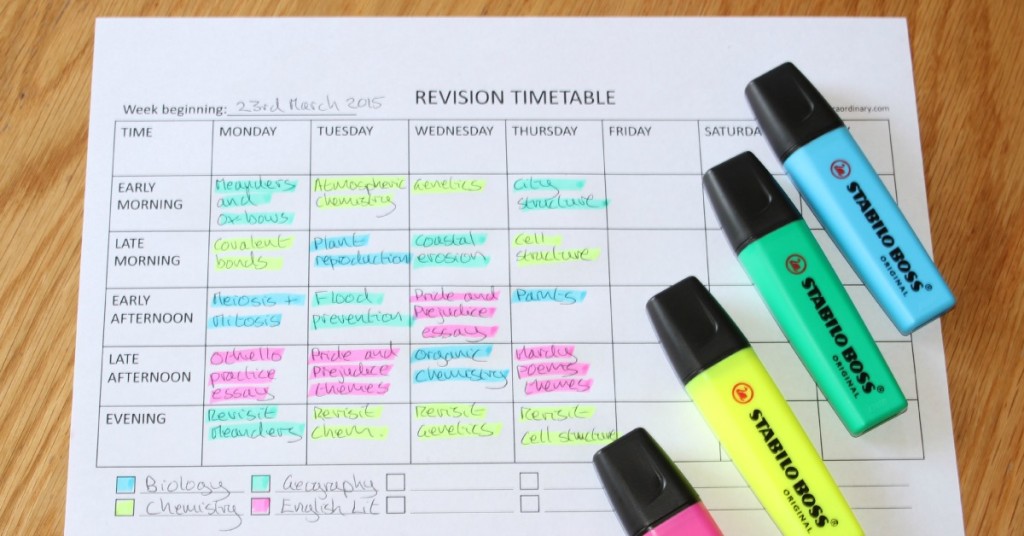 Week beginning: 23rd March 2015
REVISION TIMETABLE
raordinary.com
TIME
MONDAY
TUESDAY
WEDNESDAY
THURSDAY
FRIDAY
SATURDA
EARLY
MORNING
Meanders
and
Oxbows
Atmospheric
chemistry
Genetics
City
structure
LATE
MORNING
Covalent
bonds
Plant
reproduction
Coastal
erosion
Cell
structure
EARLY
AFTERNOON
Meiosis +
Mitosis
Flood
prevention
Pride and
Prejudice
essay
LATE
AFTERNOON
Othello
practice
essay
Pride and
Prejudice
themes
Organic
chemistry
Hardy
poems
themes
EVENING
Revisit
Meanders
Revisit
Chem.
Revisit
Genetics
Revisit
Cell structure
Biology
Geography
Chemistry
English Lit
STABILO BOSS
ORIGINAL
STABILO BOSS
ORIGINAL
STABILO BOSS
ORIGINAL